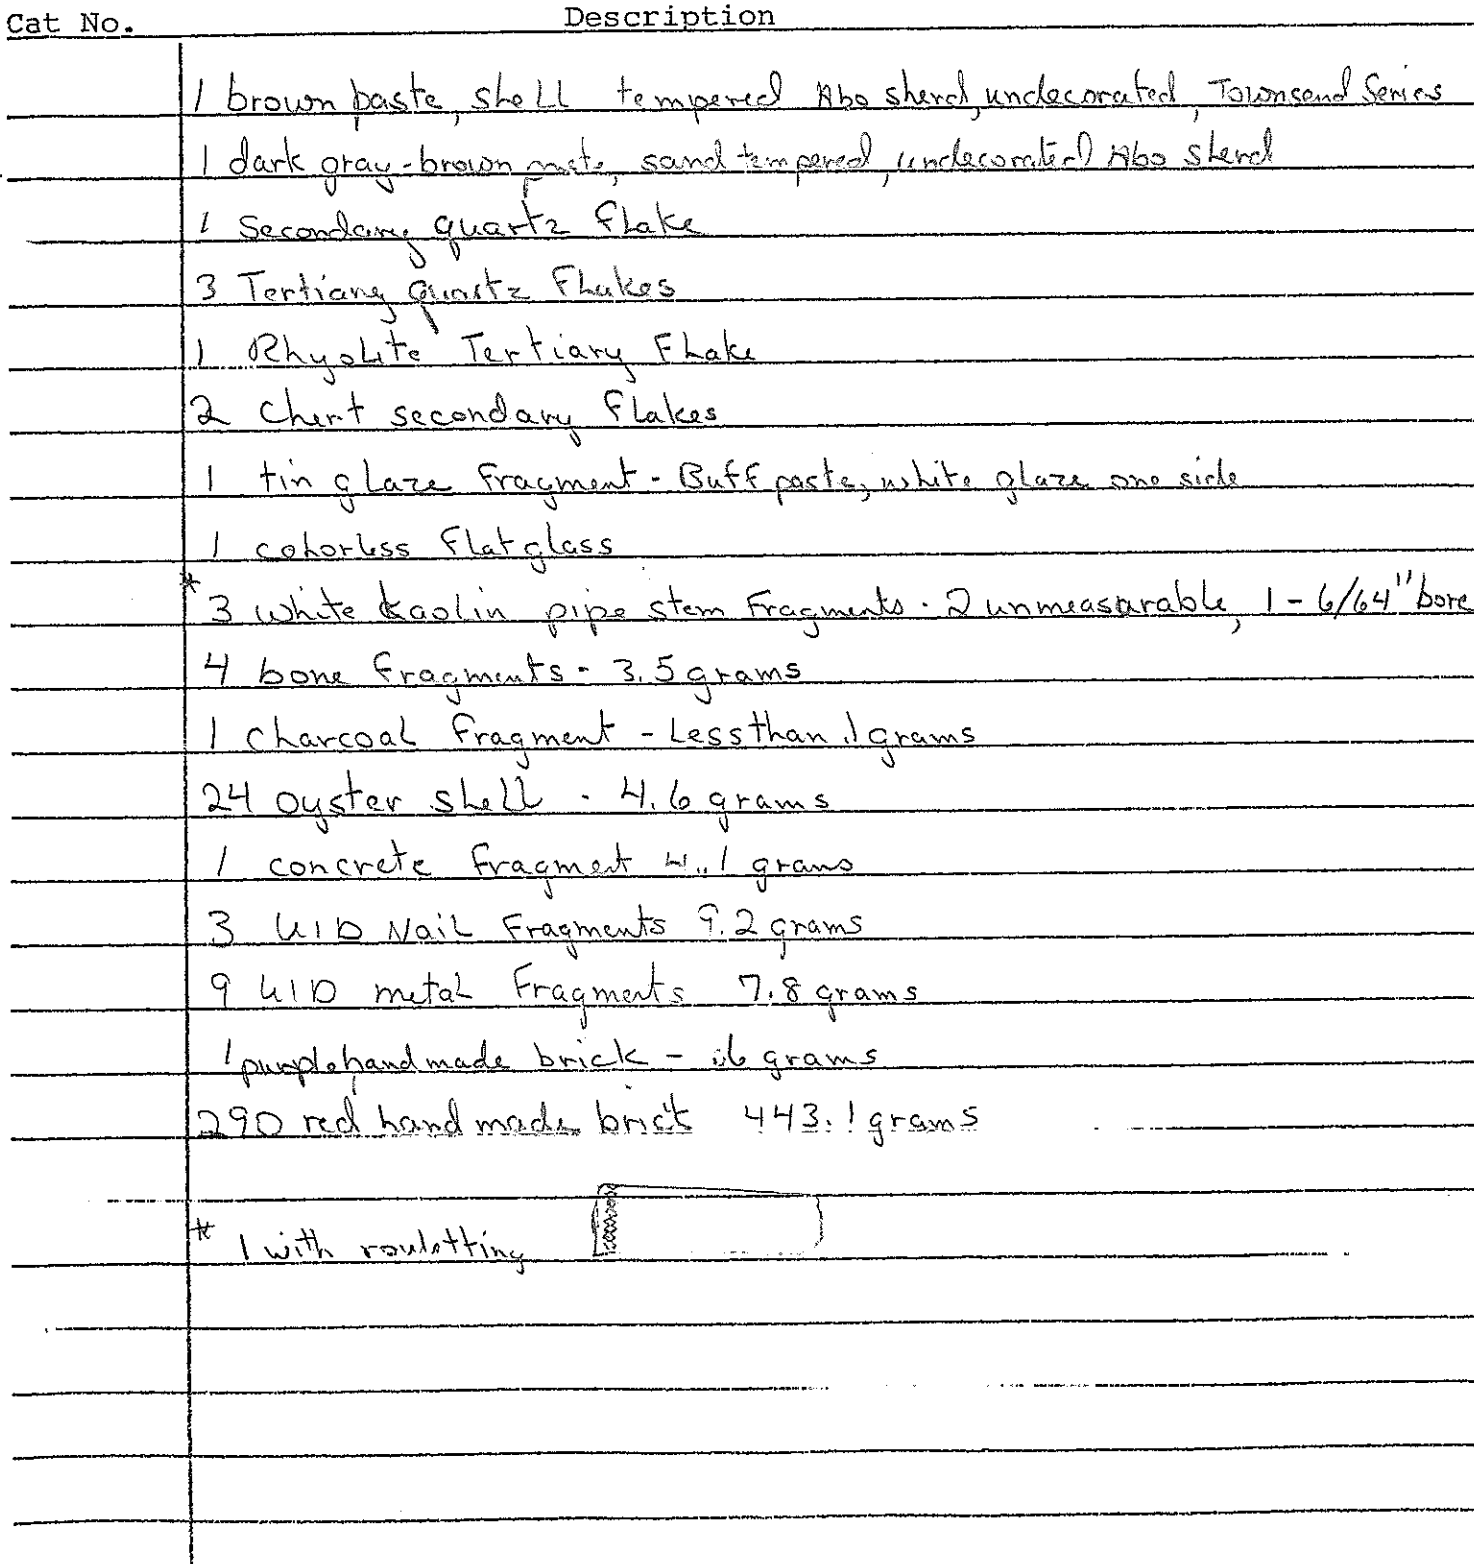 Cat No. Description
1 brown paste, shell tempered Abo sherd, undecorated, Townsend Series
1 dark gray-brown paste, sand tempered, undecorated Abo sherd
1 Secondary quartz Flake
3 Tertiary Quartz Flakes
1 Rhyolite Tertiary Flake
2 Chert secondary Flakes
1 tin glaze Fragment - Buff paste, white glaze one side
1 colorless Flat glass
* 3 white kaolin pipe stem Fragments - 2 unmeasurable, 1 - 6/64" bore
4 bone Fragments - 3.5 grams
1 Charcoal Fragment - Less than .1 grams
24 oyster shell - 4.6 grams
1 concrete Fragment 4.1 grams
3 UID Nail Fragments 9.2 grams
9 UID metal Fragments 7.8 grams
1 purple handmade brick - .6 grams
290 red hand made brick 443.1 grams
* 1 with roulotting